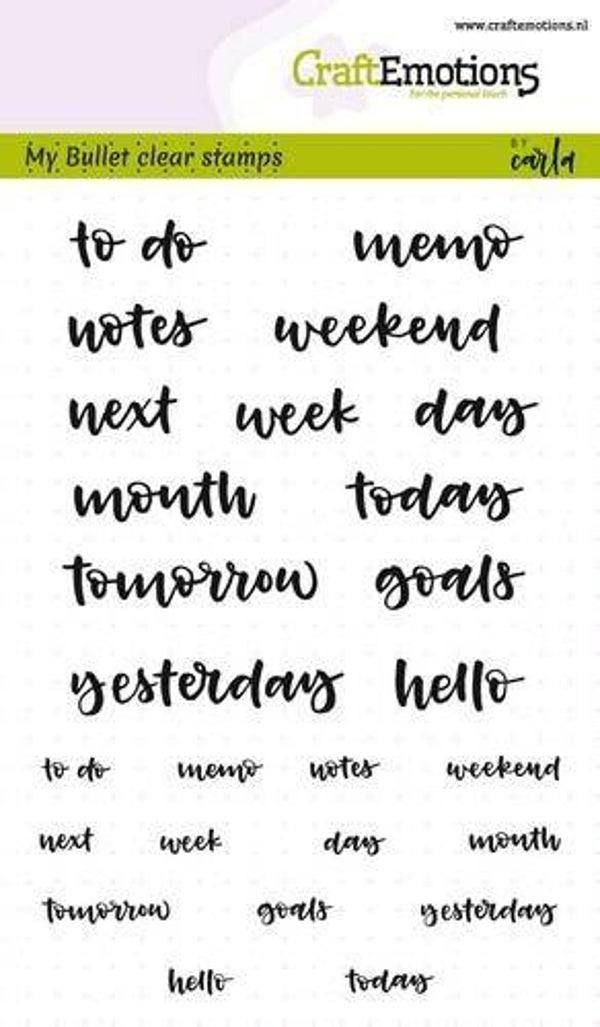 www.craftemotions.nl
CraftEmotions
For the personal touch
My Bullet clear stamps BY carla
to do memo
notes weekend
next week day
month today
tomorrow goals
yesterday hello
to do memo notes weekend
next week day month
tomorrow goals yesterday
hello today